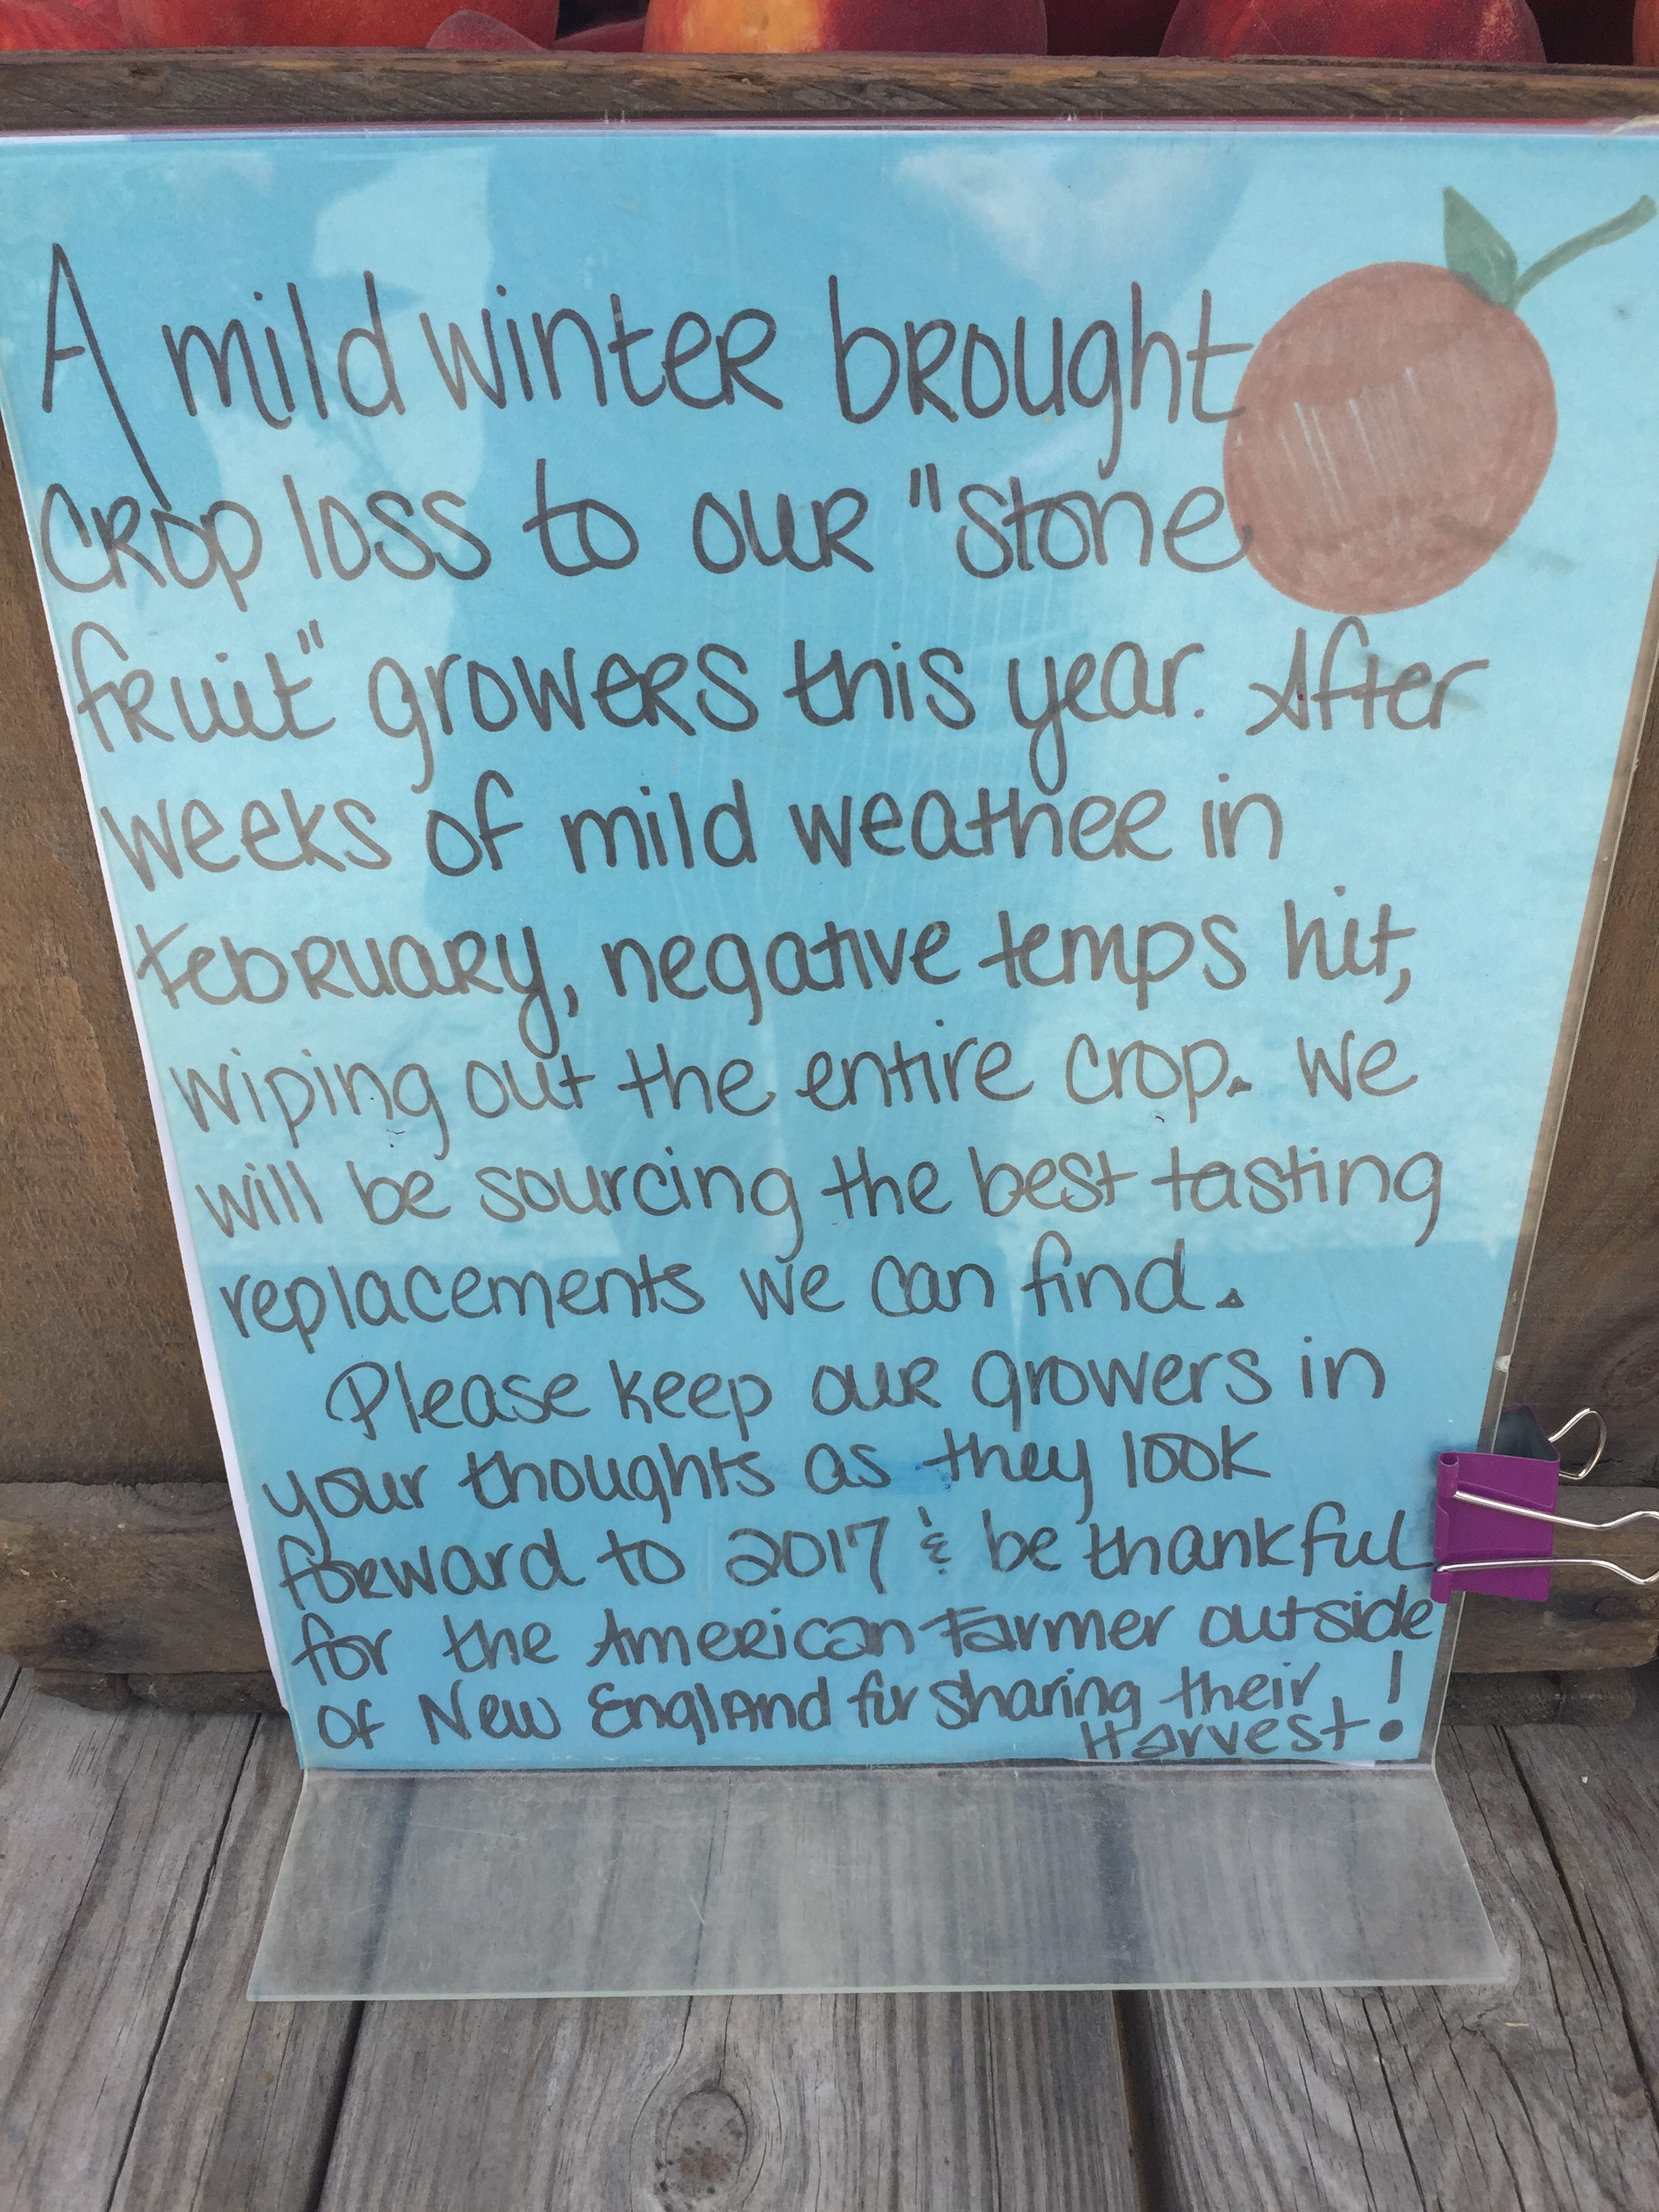 A mild winter brought
crop loss to our "stone
fruit" growers this year. After
weeks of mild weather in
February, negative temps hit,
wiping out the entire crop. We
will be sourcing the best tasting
replacements we can find.
Please keep our growers in
your thoughts as they look
forward to 2017 & be thankful
for the American Farmer outside
of New England for sharing their
Harvest!